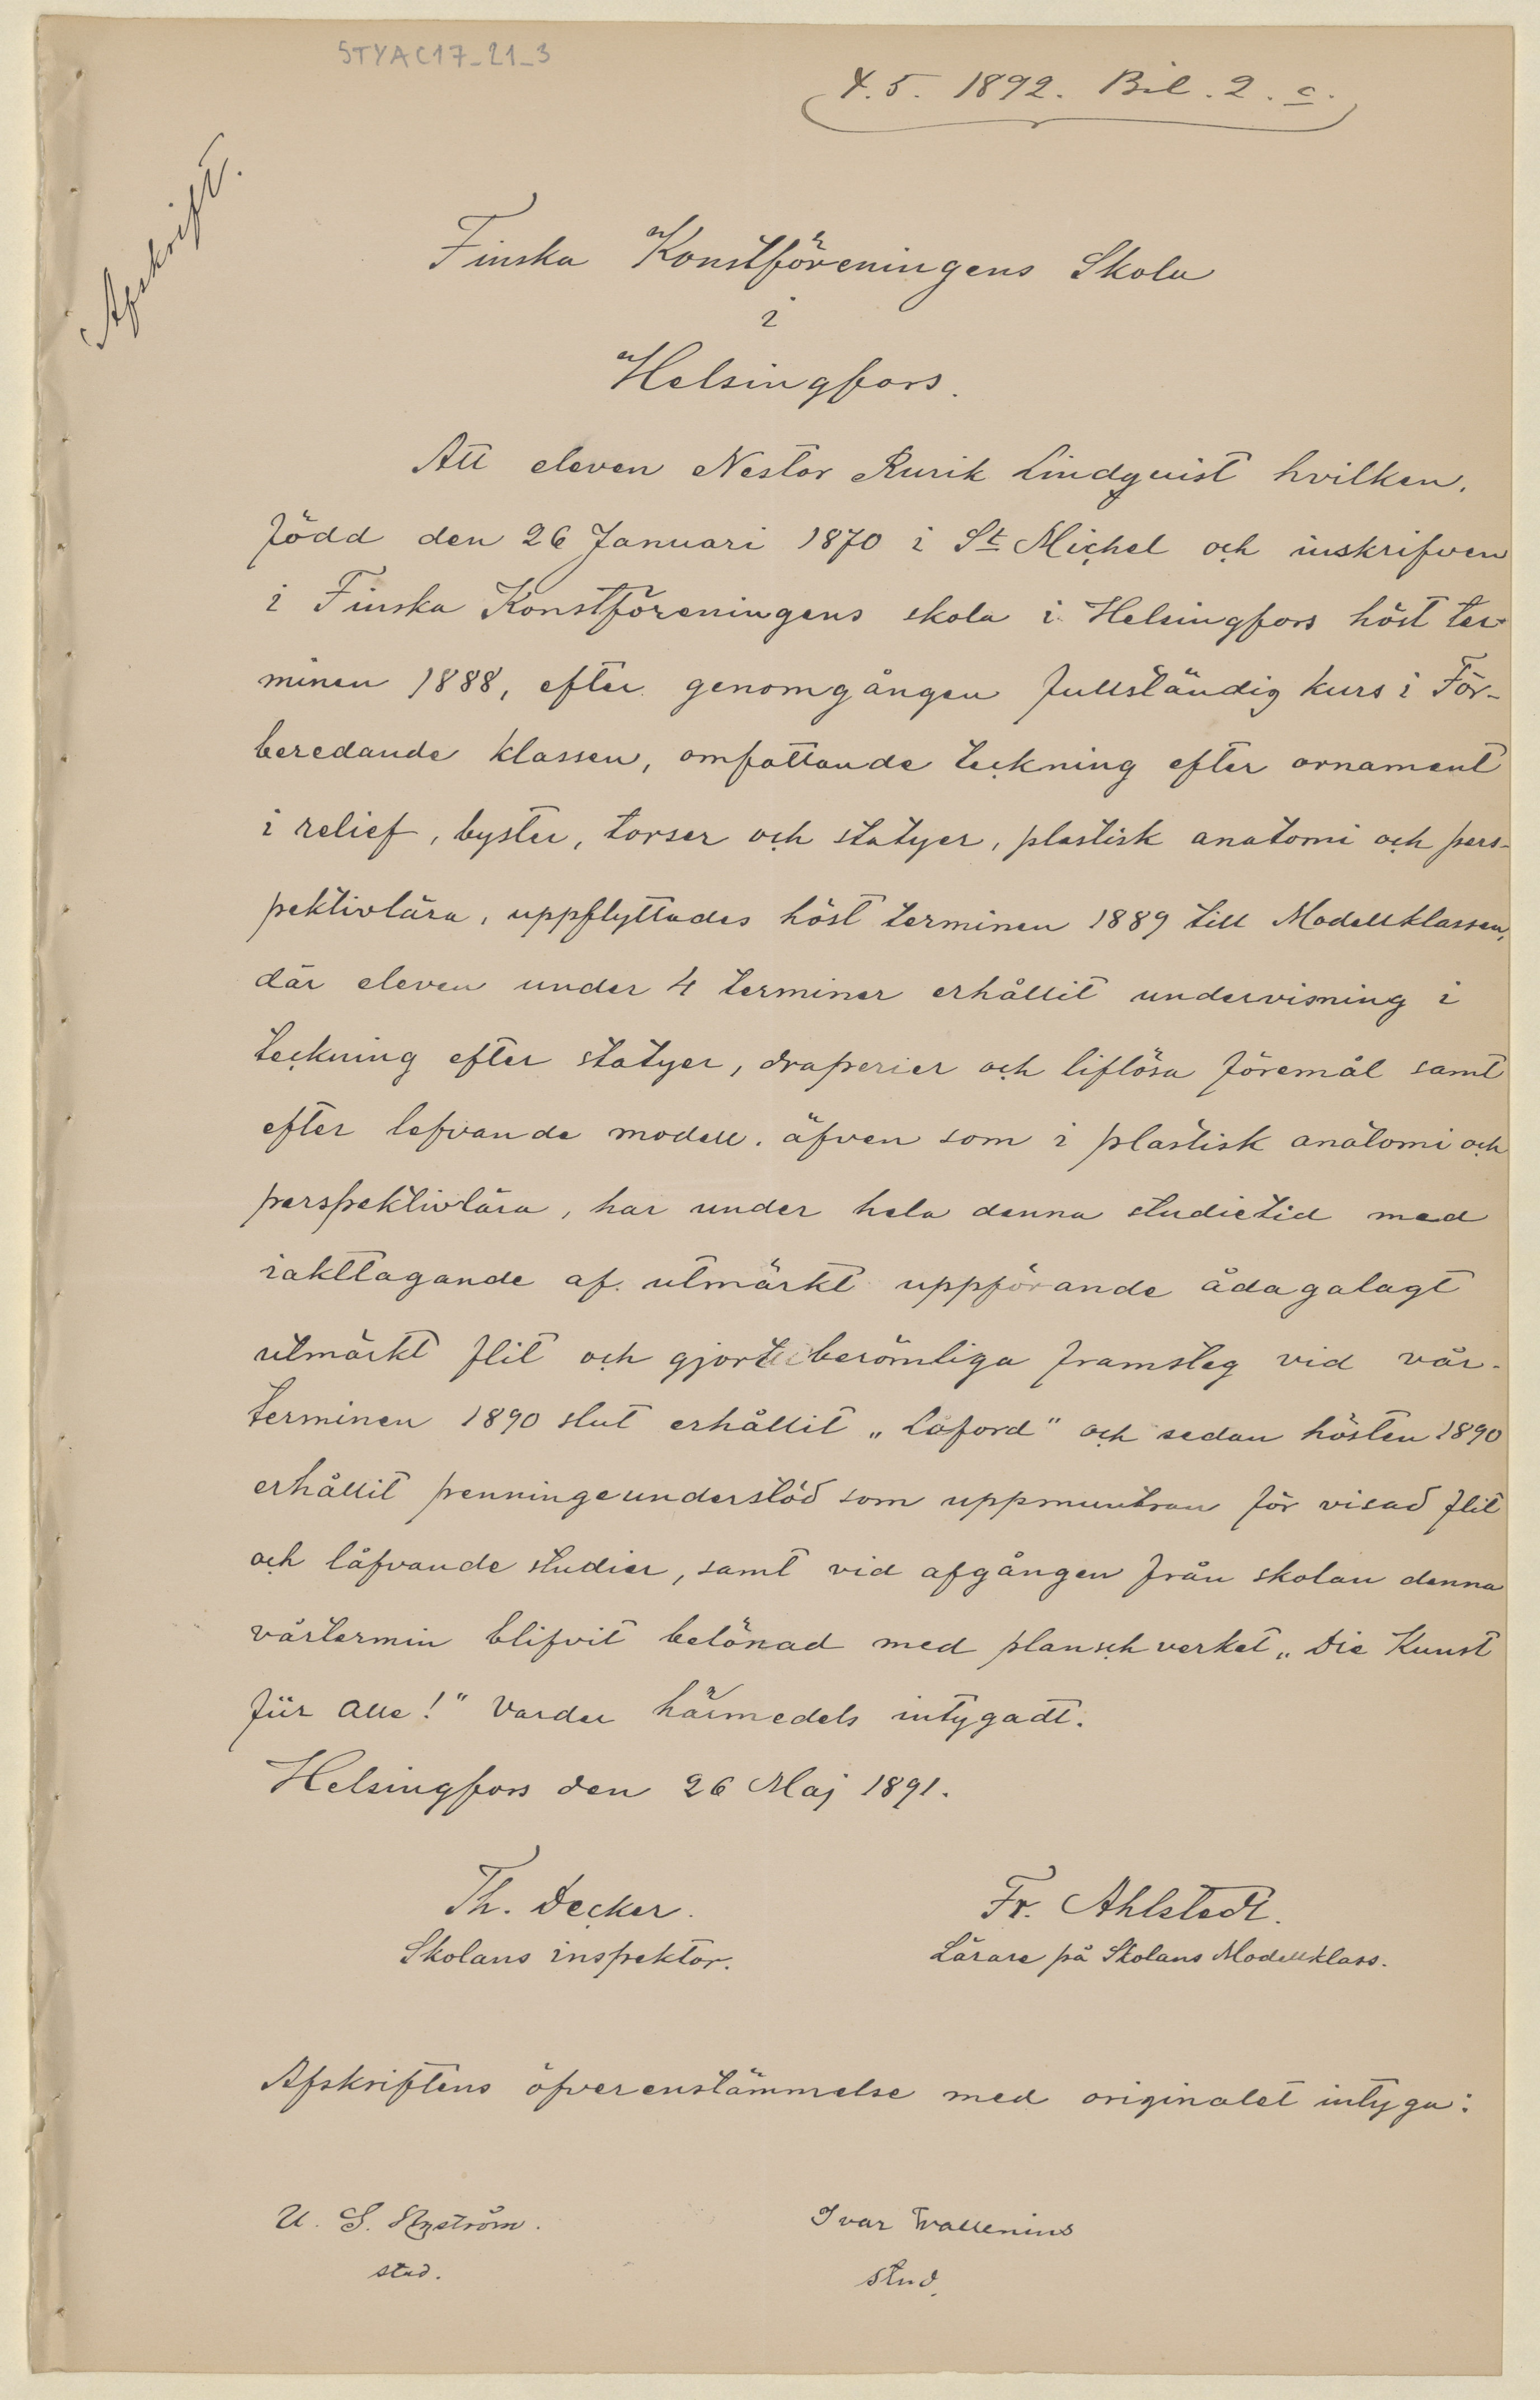 STYAC17_21_3
4.5. 1892. Bil. 2. c.
Afskrift.
Finska Konstföreningens Skola
i
Helsingfors.
Att eleven Nestor Rurik Lindqvist hvilken,
född den 26 Januari 1870 i St Michel och inskrifven
i Finska Konstföreningens skola i Helsingfors höst ter-
minen 1888, efter genomgången fullständig kurs i För-
beredande klassen, omfattande teckning efter ornament
i relief, byster, torser och statyer, plastisk anatomi och pers-
pektivlära, uppflyttades höst terminen 1889 till Modellklassen,
där eleven under 4 terminer erhållit undervisning i
teckning efter statyer, draperier och liflösa föremål samt
efter lefvande modell. äfven som i plastisk anatomi och
perspektivlära, har under hela denna studietid med
iakttagande af utmärkt uppförande ådagalagt
utmärkt flit och gjort berömliga framsteg vid vår-
terminen 1890 slut erhållit „Låford" och sedan hösten 1890
erhållit penningeunderstöd som uppmuntran för visad flit
och låfvande studier, samt vid afgången från skolan denna
vårtermin blifvit belönad med planschverket „Die Kunst
für Alle!" Varder härmedels intygadt.
Helsingfors den 26 Maj 1891.
Th. Decker.
Fr. Ahlstedt.
Skolans inspektor.
Lärare på Skolans Modellklass.
Afskriftens öfverenstämmelse med originalet intyga:
U. S. Nyström.
Ivar Wallenius
stud.
stud.